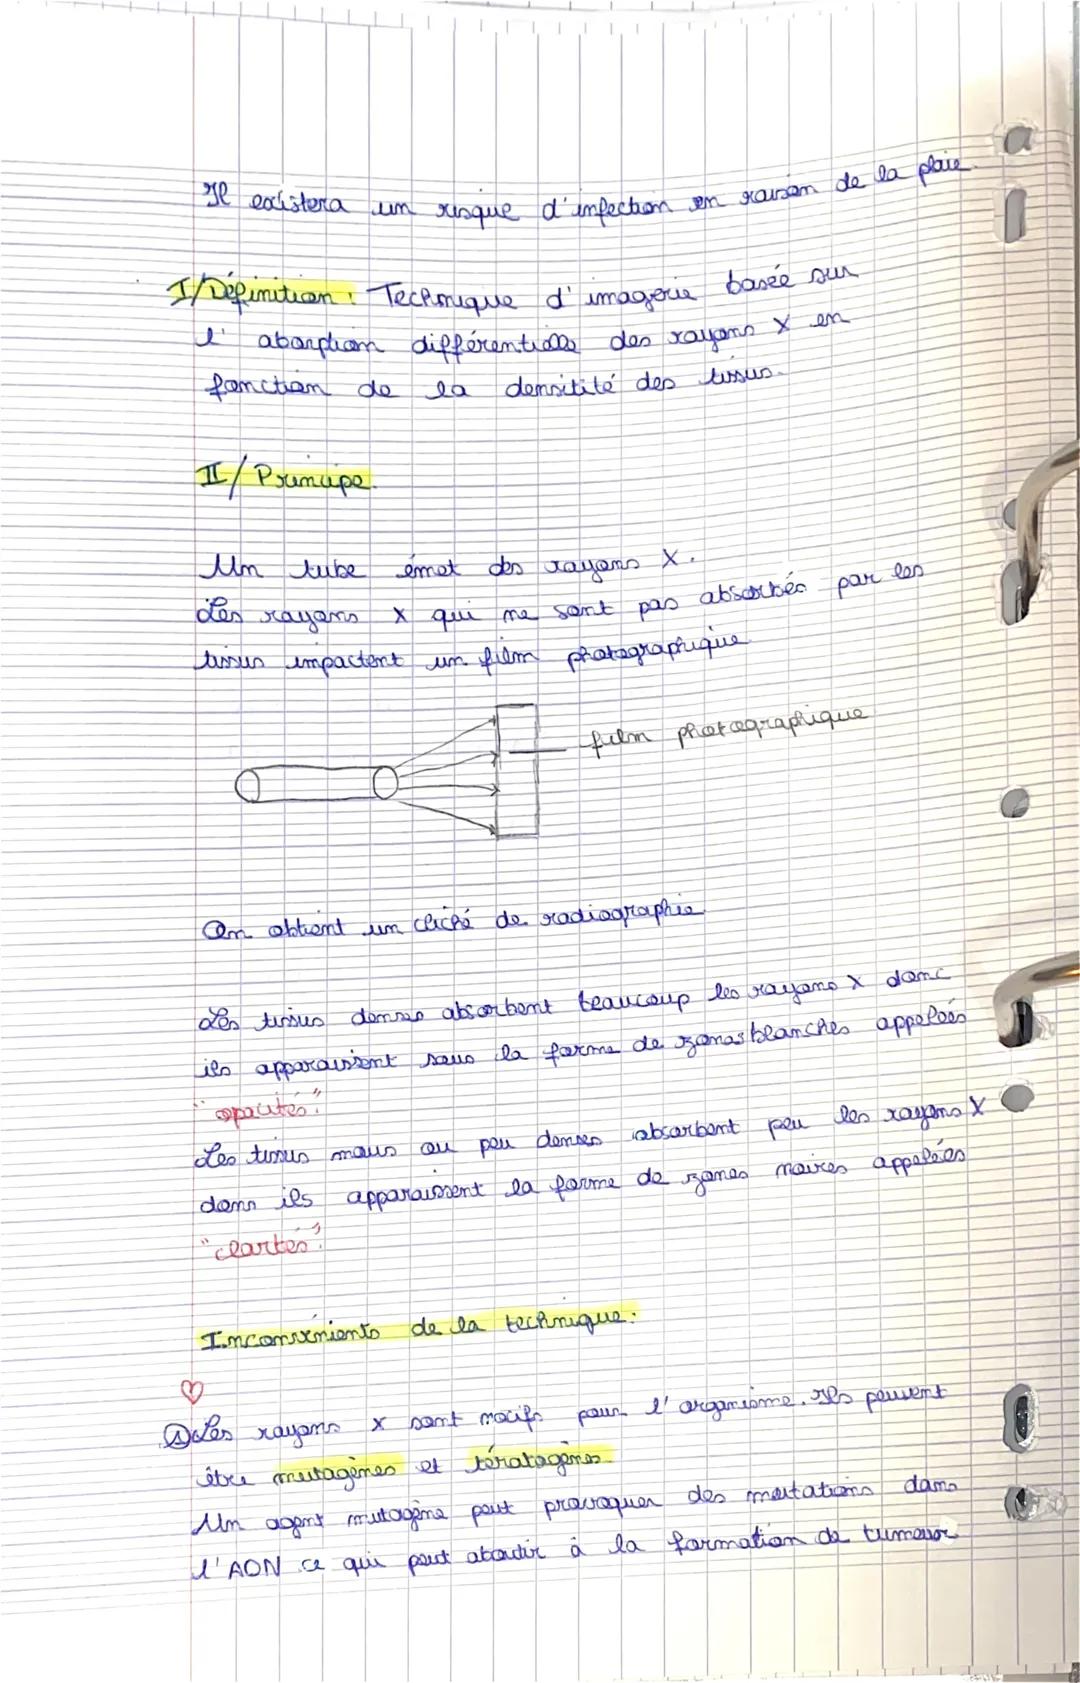 Il existera un risque d'infection en raison de la plaie.
I/Définition : Technique d'imagerie basée sur
l'abarption différentielle des rayons X en
fonction de la densitité des tissus.
II/ Principe.
Un tube émet des rayons X.
Les rayons X qui ne sont pas absorbés par les
tissus impactent un film photographique
film photographique
On obtient un cliché de radiographie
Les tissus denses absorbent beaucoup les rayons X donc
ils apparaissent sous la forme de zones blanches appelées
"opacités".
Les tissus mous ou peu denses absorbent peu les rayons X
donc ils apparaissent la forme de zones noires appelées
"clartés".
Inconvénients de la technique.
① Les rayons X sont nocifs pour l'organisme. Ils peuvent
être mutagènes et tératogènes.
Un agent mutagène peut provoquer des mutations dans
l'ADN ce qui peut aboutir à la formation de tumeur